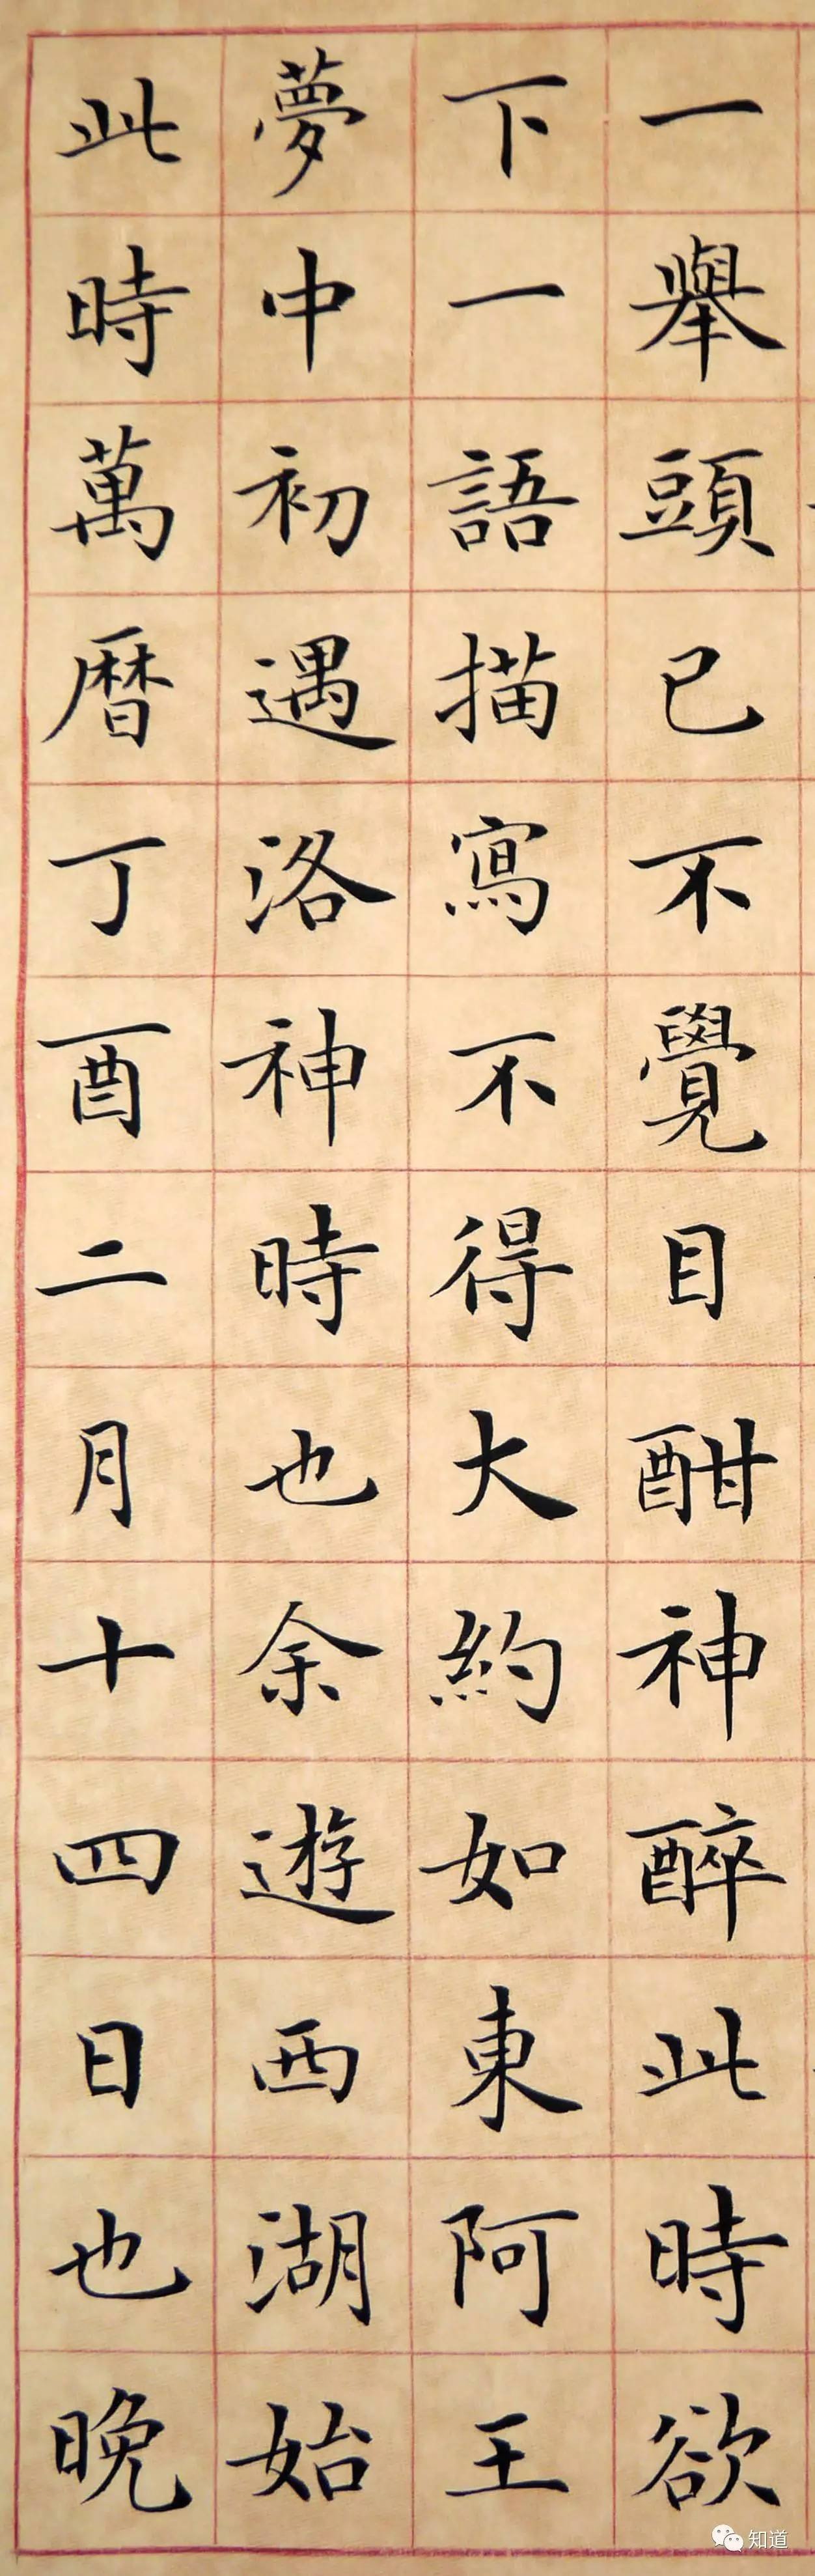 一舉頭已不覺目酣神醉此時欲
下一語描寫不得大約如東阿王
夢中初遇洛神時也余遊西湖始
此時萬曆丁酉二月十四日也晚
知道